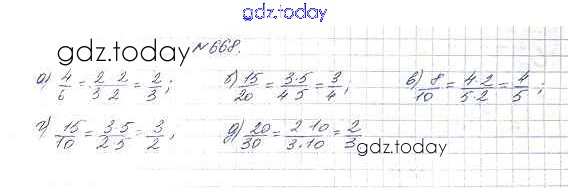 gdz.today
gdz.today №668.
а) 4/6 = 2·2/3·2 = 2/3; б) 15/20 = 3·5/4·5 = 3/4; в) 8/10 = 4·2/5·2 = 4/5;
г) 15/10 = 3·5/2·5 = 3/2, д) 20/30 = 2·10/3·10 = 2/3
gdz.today